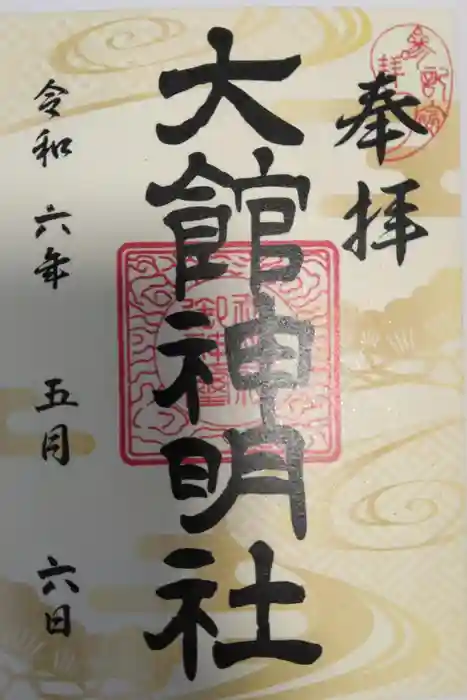 奉拝
大館神明社
令和六年五月六日